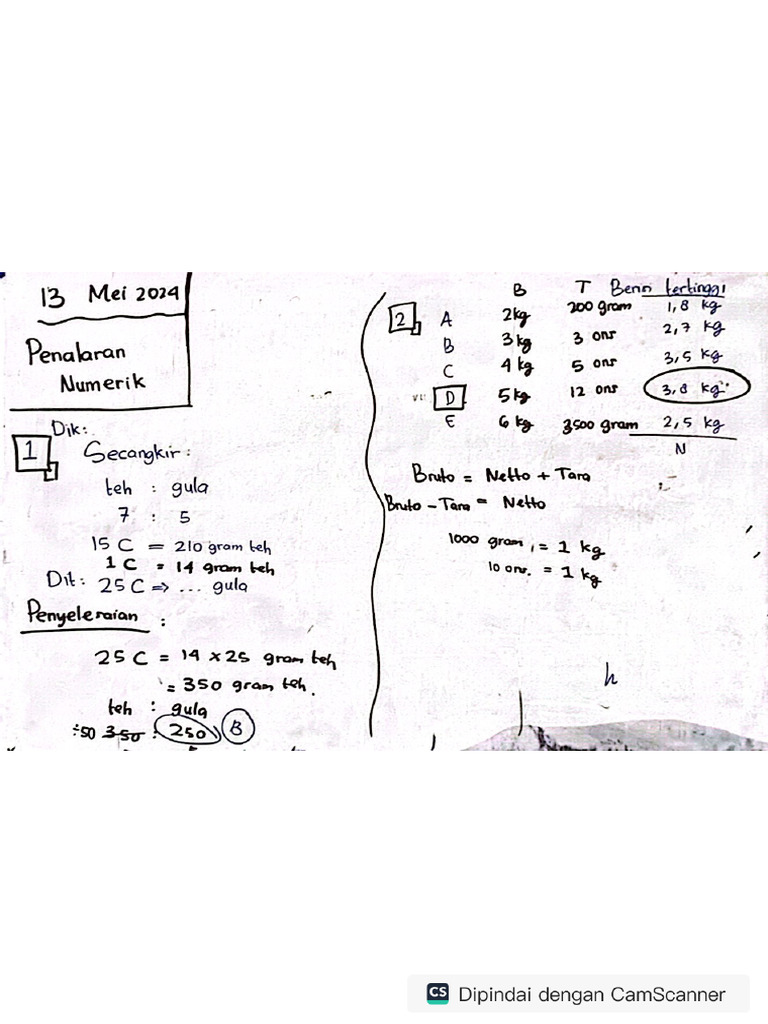 13 Mei 2024
Penalaran
Numerik
Dik:
1 Secangkir:
teh : gula
7 : 5
15 C = 210 gram teh
1 C = 14 gram teh
Dit: 25 C => ... gula
Penyelesaian :
25 C = 14 x 25 gram teh
= 350 gram teh.
teh : gula
÷50 350 : 250 B
B T Bersih tertinggi
2 A 2kg 200 gram 1,8 kg
B 3kg 3 ons 2,7 kg
C 4 kg 5 ons 3,5 kg
D 5kg 12 ons 3,8 kg
E 6 kg 3500 gram 2,5 kg
N
Bruto = Netto + Tara
Bruto - Tara = Netto
1000 gram = 1 kg
10 ons. = 1 kg
h
CS Dipindai dengan CamScanner